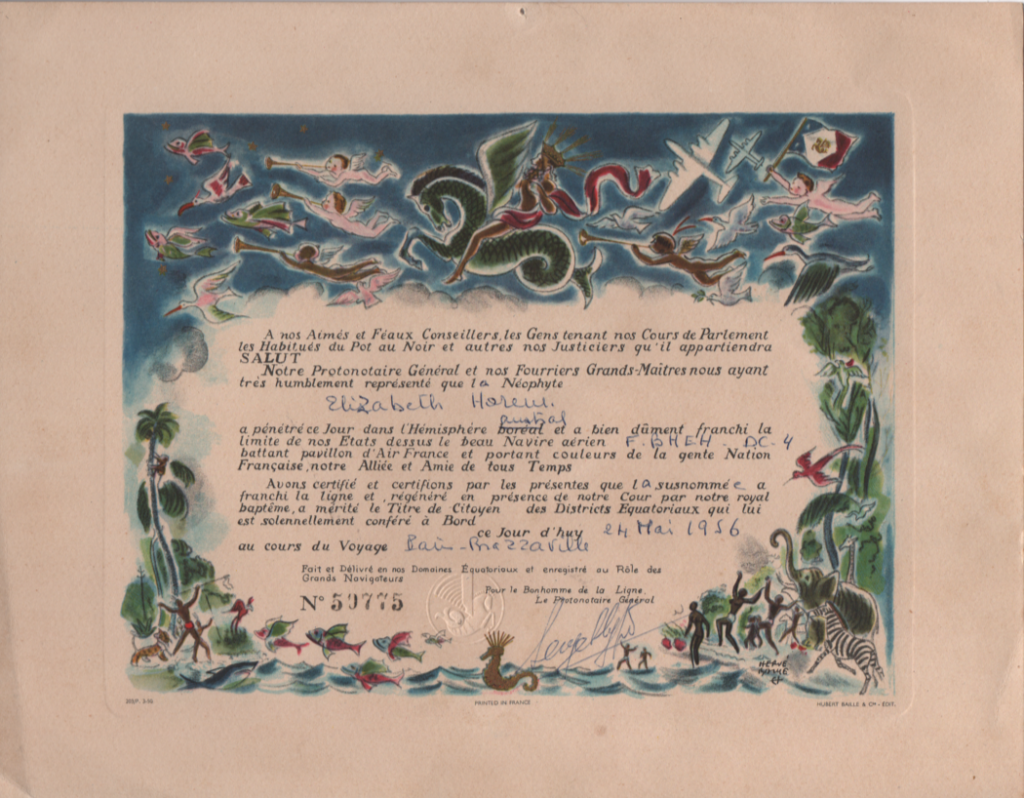 A nos Aimés et Féaux Conseillers, les Gens tenant nos Cours de Parlement
les Habitués du Pot au Noir et autres nos Justiciers qu'il appartiendra
SALUT
Notre Protonotaire Général et nos Fourriers Grands-Maîtres nous ayant
très humblement représenté que la Néophyte
Elizabeth
austral
a pénétré ce Jour dans l'Hémisphère boréal et a bien dûment franchi la
limite de nos Etats dessus le beau Navire aérien F-BHEH - DC-4
battant pavillon d'Air France et portant couleurs de la gente Nation
Française, notre Alliée et Amie de tous Temps
Avons certifié et certifions par les présentes que la susnommée a
franchi la ligne et, régénéré en présence de notre Cour par notre royal
baptême, a mérité le Titre de Citoyen des Districts Equatoriaux qui lui
est solennellement conféré à Bord
ce Jour d'huy 24 Mai 1956
au cours du Voyage Paris-Brazzaville
Fait et Délivré en nos Domaines Équatoriaux et enregistré au Rôle des
Grands Navigateurs
Pour le Bonhomme de la Ligne,
Le Protonotaire Général
N° 59775
HERVÉ
PRINTED IN FRANCE
HUBERT BAILLE & Cie - EDIT.